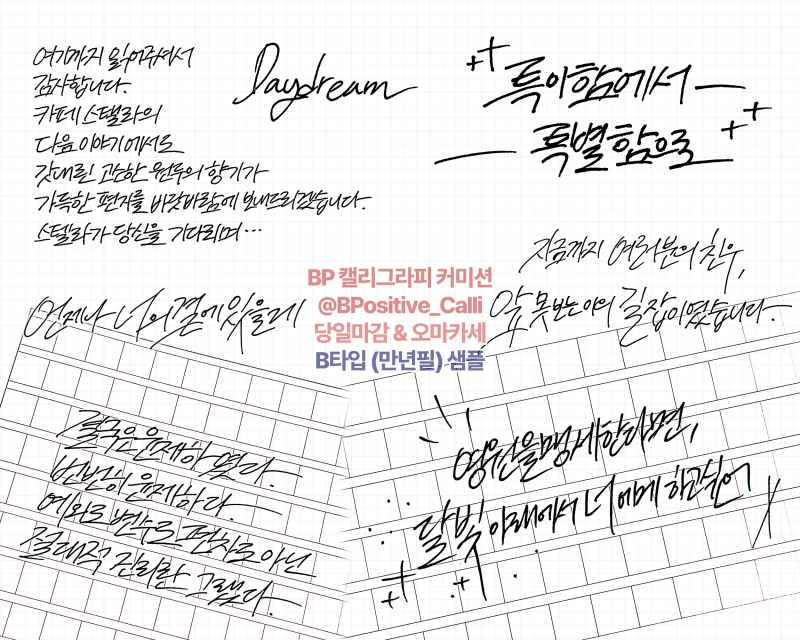 여기까지 읽어주셔서
감사합니다.
카페 스텔라의
다음 이야기에서도
갓 내린 고소한 원두의 향기가
가득한 편지를 바닷바람에 보내드리겠습니다.
스텔라가 당신을 기다리며…
Daydream
특이함에서
특별함으로
지금까지 여러분의 친우,
앞 못 보는 아의 길잡이였습니다.
언제나 너의 곁에 있을 테
BP 캘리그라피 커미션
@BPositive_Calli
당일마감 & 오마카세
B타입 (만년필) 샘플
결국은 윤제하였다.
번번히 윤제하다.
예외도 변수도 편차도 아닌
절대적 진리란 그랬다.
영원을 맹세한다면,
달빛 아래에서 너에게 하고 싶어